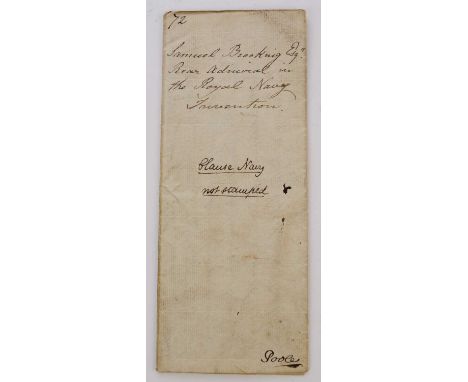 72
Samuel Brooking Esqr.
Rear Admiral in
the Royal Navy
Invention.
Clause Navy
not stamped
Poole